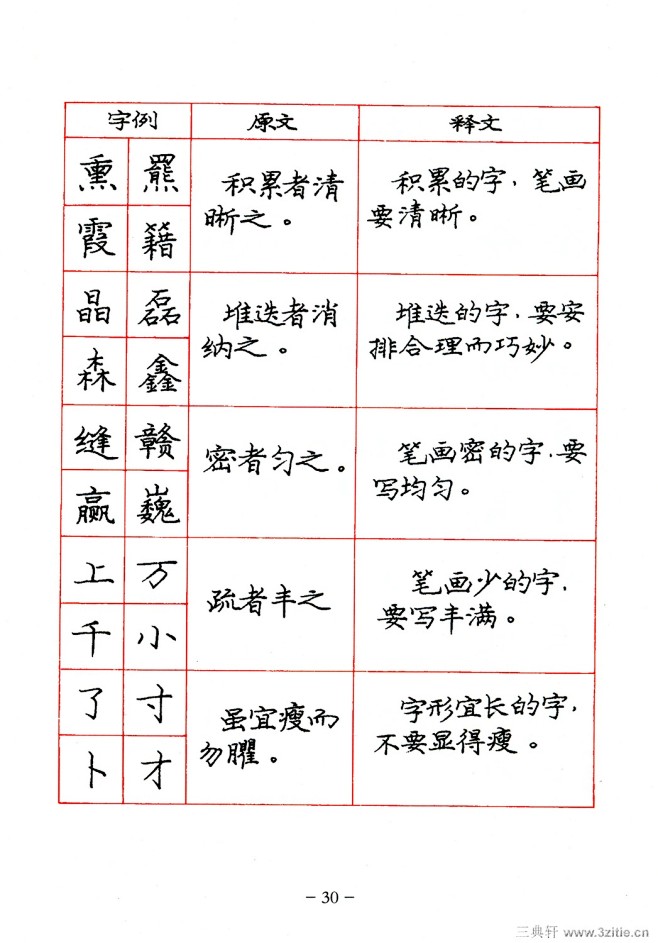 字例 原文 释文
熏 罴 积累者清 积累的字，笔画
霞 籍 晰之。 要清晰。
晶 磊 堆迭者消 堆迭的字，要安
森 鑫 纳之。 排合理而巧妙。
缝 赣 密者匀之。 笔画密的字，要
赢 巍 写均匀。
上 万 疏者丰之 笔画少的字，
千 小 要写丰满。
了 寸 虽宜瘦而 字形宜长的字，
卜 才 勿臞。 不要显得瘦。
- 30 -
三典轩 www.3zitie.cn